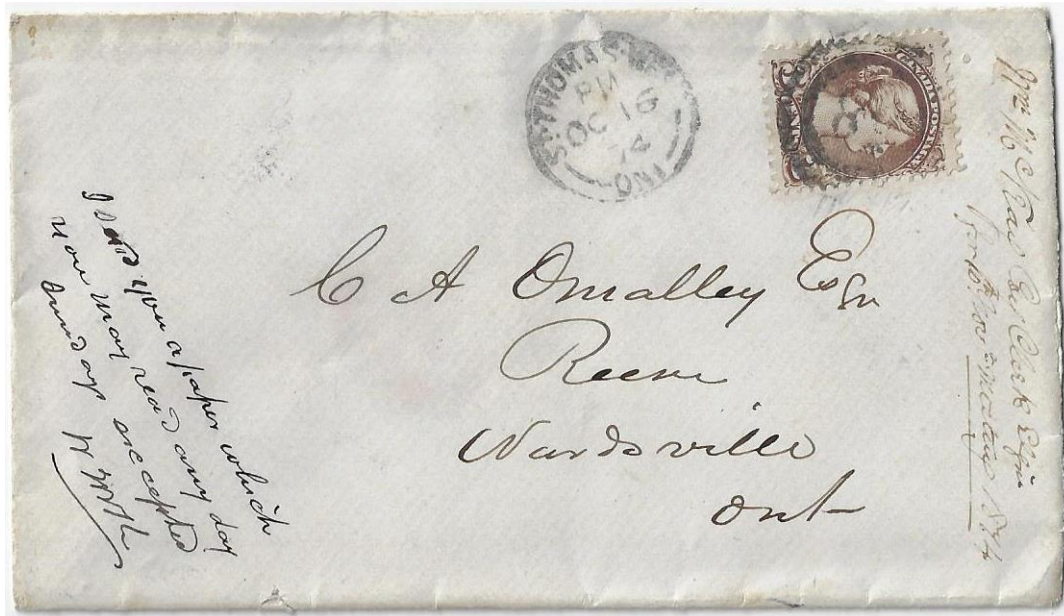 ST THOMAS
PM
OC 16
74
ONT
CANADA POSTAGE
C A Omalley Esqr
Reeve
Wardsville
Ont
I send you a paper which
you may read any day
Sunday accepted
Wm Mc Esq Clerk Elgin